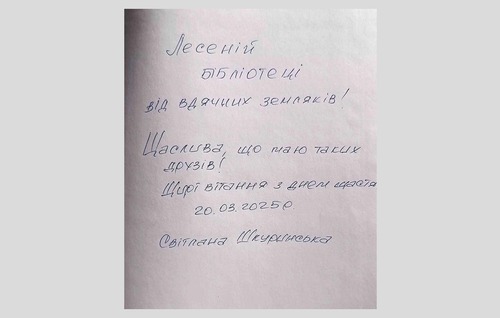 Лесеній
бібліотеці
від вдячних земляків!
Щаслива, що маю таких
друзів!
Щирі вітання з днем щастя
20.03.2025р
Світлана Шкуринська